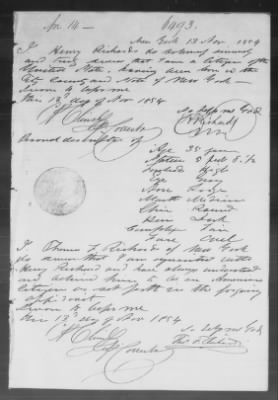 No. 14 — 6493.
New York 13 Nov 1854
I Henry Richards do solemnly sincerely
and truly swear that I am a Citizen of the
United States, having been born in the
City County and State of New York —
Sworn to before me
this 13th day of Nov 1854
So help me God
H Richards
Personal description of
Age 35 years
Stature 5 feet 8 1/2
Forehead High
Eye Grey
Nose Large
Mouth Medium
Chin Round
Hair Dark
Complexn Fair
Face Oval
I Thomas F. Richards of New York
do swear that I am acquainted with
Henry Richards and have always understood
and believed him to be an American
Citizen as set forth in the forgoing
Sworn to before me
this 13th day of Nov 1854
So help me God
Thos F Richards